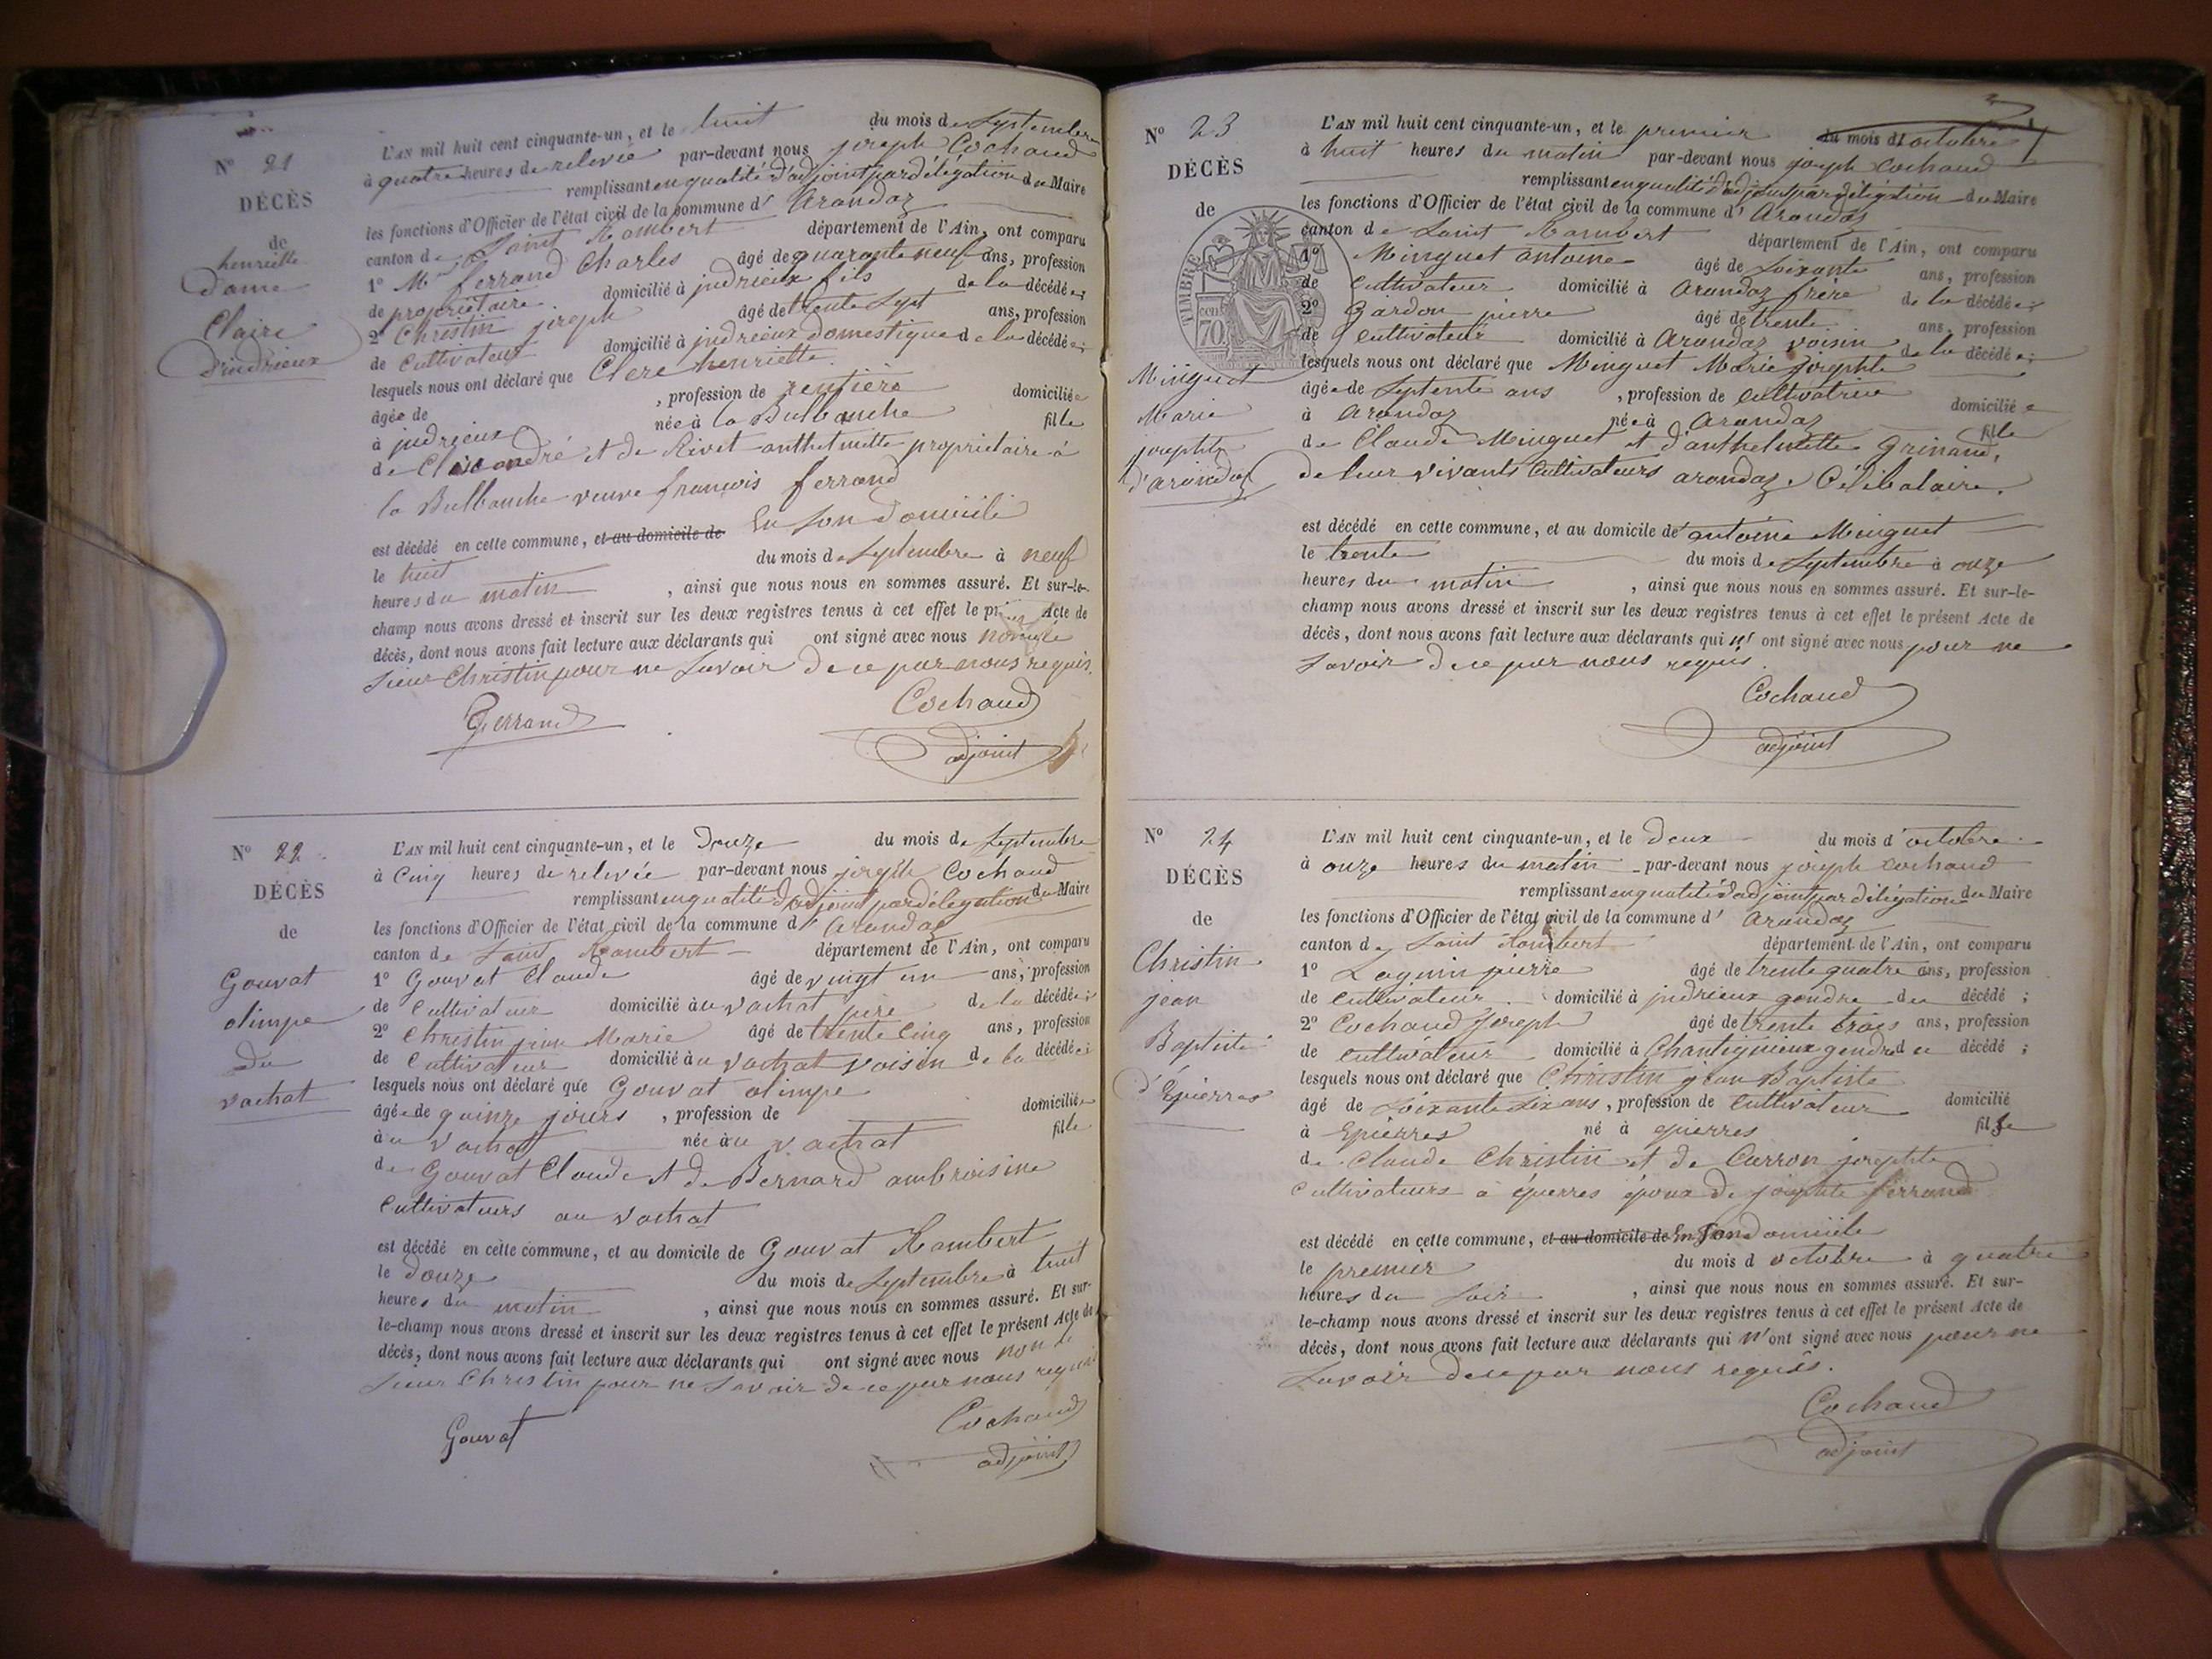 N° 21
DÉCÈS
de
henriette
Dame
Claire
D'indrieux
L'AN mil huit cent cinquante-un, et le huit du mois de Septembre
à quatre heures de relevée par-devant nous joseph Cochaud
remplissant en qualité d'adjoint par délégation du Maire
les fonctions d'Officier de l'état civil de la commune d' Arandaz
canton de Saint Rambert département de l'Ain, ont comparu
1° Mr ferrand Charles âgé de quarante neuf ans, profession
de propriétaire domicilié à judrieux fils de la décédée;
2° Christin joseph âgé de trente sept ans, profession
de Cultivateur domicilié à judrieux domestique de la décédée;
lesquels nous ont déclaré que Clere henriette
âgée de , profession de rentière domiciliée
à judrieux née à la Balbauche fille
de André et de Rivet anthelmette propriétaire à
la Balbauche veuve françois ferrand
est décédé en cette commune, et au domicile de En son domicile
le huit du mois de Septembre à neuf
heures du matin , ainsi que nous nous en sommes assuré. Et sur-le-
champ nous avons dressé et inscrit sur les deux registres tenus à cet effet le présent Acte de
décès, dont nous avons fait lecture aux déclarants qui ont signé avec nous non le
Sieur Christin pour ne Savoir de ce par nous requis.
Ferrand
Cochaud
adjoint
N° 22
DÉCÈS
de
Gouvat
olimpe
Du
vachat
L'AN mil huit cent cinquante-un, et le Douze du mois de Septembre
à Cinq heures de relevée par-devant nous joseph Cochaud
remplissant en qualité d'adjoint par délégation du Maire
les fonctions d'Officier de l'état civil de la commune d' Arandaz
canton de Saint Rambert département de l'Ain, ont comparu
1° Gouvat Claude âgé de vingt un ans, profession
de Cultivateur domicilié au vachat père de la décédée;
2° Christin jean Marie âgé de trente Cinq ans, profession
de Cultivateur domicilié au vachat voisin de la décédée;
lesquels nous ont déclaré que Gouvat olimpe
âgée de quinze jours , profession de domiciliée
au vachat née au vachat fille
de Gouvat Claude et de Bernard ambroisine
Cultivateurs au vachat
est décédé en cette commune, et au domicile de Gouvat Rambert
le Douze du mois de Septembre à huit
heures du matin , ainsi que nous nous en sommes assuré. Et sur-
le-champ nous avons dressé et inscrit sur les deux registres tenus à cet effet le présent Acte de
décès, dont nous avons fait lecture aux déclarants qui ont signé avec nous non le
Sieur Christin pour ne Savoir de ce par nous requis
Gouvat
Cochaud
adjoint
N° 23
DÉCÈS
de
TIMBRE
70 cen
Minguet
Marie
josephte
d'arandaz
L'AN mil huit cent cinquante-un, et le premier du mois d'octobre
à huit heures du matin par-devant nous joseph Cochaud
remplissant en qualité d'adjoint par délégation du Maire
les fonctions d'Officier de l'état civil de la commune d' Arandaz
canton de Saint Rambert département de l'Ain, ont comparu
1° Minguet antoine âgé de Soixante ans, profession
de Cultivateur domicilié à Arandaz frère de la décédée;
2° Gardon pierre âgé de trente ans, profession
de Cultivateur domicilié à Arandaz voisin de la décédée;
lesquels nous ont déclaré que Minguet Marie josephte
âgée de Septente ans , profession de Cultivatrice domiciliée
à Arandaz née à Arandaz fille
de Claude Minguet et d'anthelmette Grinand,
de leur vivants Cultivateurs arandaz, Célibataire.
est décédé en cette commune, et au domicile de antoine Minguet
le trente du mois de Septembre à onze
heures du matin , ainsi que nous nous en sommes assuré. Et sur-le-
champ nous avons dressé et inscrit sur les deux registres tenus à cet effet le présent Acte de
décès, dont nous avons fait lecture aux déclarants qui n' ont signé avec nous pour ne
Savoir de ce par nous requis.
Cochaud
adjoint
N° 24
DÉCÈS
de
Christin
jean
Baptiste
d'Epierres
L'AN mil huit cent cinquante-un, et le Deux du mois d'octobre
à onze heures du matin par-devant nous joseph Cochaud
remplissant en qualité d'adjoint par délégation du Maire
les fonctions d'Officier de l'état civil de la commune d' Arandaz
canton de Saint Rambert département de l'Ain, ont comparu
1° Laguin pierre âgé de trente quatre ans, profession
de Cultivateur domicilié à judrieux gendre du décédé;
2° Cochaud joseph âgé de trente trois ans, profession
de Cultivateur domicilié à Chantignieux gendre du décédé;
lesquels nous ont déclaré que Christin jean Baptiste
âgé de Soixante Six ans, profession de Cultivateur domicilié
à Epierres né à epierres fils
de Claude Christin et de Carron josephte
Cultivateurs à épierres époux de josephte ferrand
est décédé en cette commune, et au domicile de En Son Domicile
le premier du mois d octobre à quatre
heures du Soir , ainsi que nous nous en sommes assuré. Et sur-
le-champ nous avons dressé et inscrit sur les deux registres tenus à cet effet le présent Acte de
décès, dont nous avons fait lecture aux déclarants qui n' ont signé avec nous pour ne
Savoir de ce par nous requis.
Cochaud
adjoint